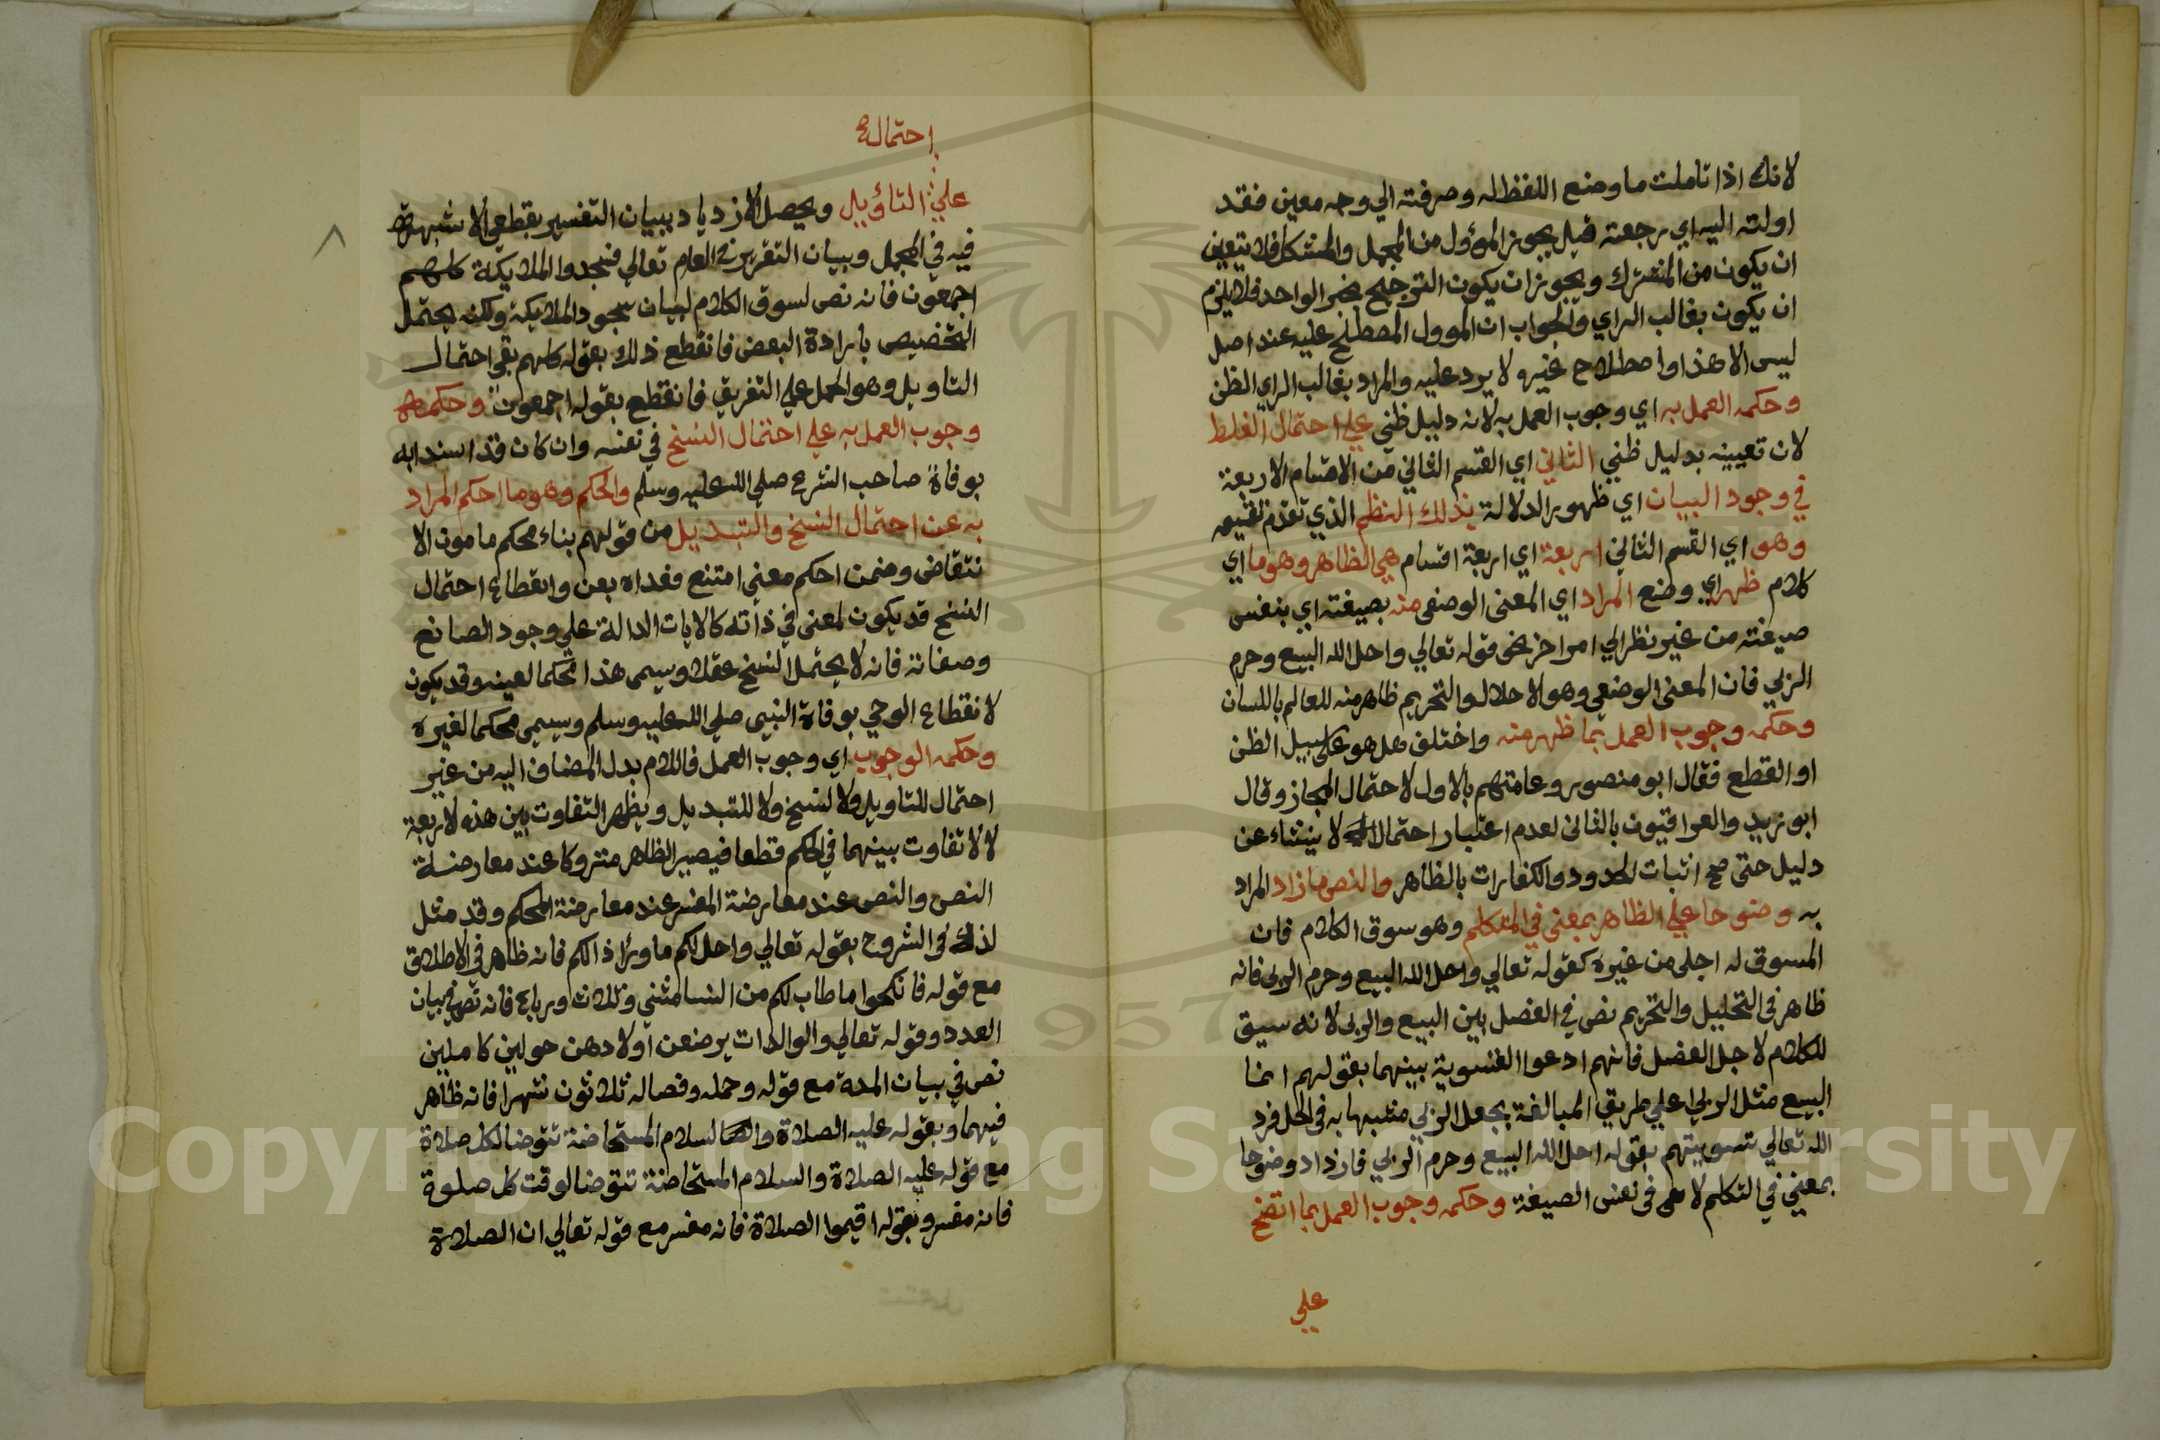 لانك اذا تاملت ما وضع اللفظ له وصرفته الي وجه معين فقد
اولته اليه اي رجعته قيل يجوز المؤول من المجمل والمشكل فلا يتعين
ان يكون من المشترك ويجوز ان يكون الترجيح بخبر الواحد فلا يلزم
ان يكون بغالب الراي والجواب ان الموول المصطلح عليه عند اصل
ليس الا هذا واصطلاح غيره لا يرد عليه والمراد بغالب الراي الظن
وحكمه العمل به اي وجوب العمل به لانه دليل ظني علي احتمال الغلط
لان تعيينه بدليل ظني الثاني اي القسم الثاني من الاقسام الاربعة
في وجود البيان اي ظهور الدلالة بذلك النظم الذي تقدم تقسيمه
وهو اي القسم الثاني اربعة اي اربعة اقسام هي الظاهر وهو ما اي
كلام ظهر اي وضع المراد اي المعنى الوضعي منه بصيغته اي بنفس
صيغته من غير نظر الي امر اخر نحو قوله تعالي واحل الله البيع وحرم
الربي فان المعنى الوضعي وهو الاحلال والتحريم ظاهر منه للعالم باللسان
وحكمه وجوب العمل بما ظهر منه واختلف هل هو على سبيل الظن
او القطع فقال ابو منصور وعامتهم بالاول لاحتمال المجاز وقال
ابو زيد والعراقيون بالثاني لعدم اعتبار احتمال لا ينشاء عن
دليل حتى صح اثبات الحدود والكفارات بالظاهر والنص ما زاد المراد
به وضوحا علي الظاهر بمعنى في المتكلم وهو سوق الكلام فان
المسوق له اجلى من غيره كقوله تعالي واحل الله البيع وحرم الربى فانه
ظاهر في التحليل والتحريم نص في الفصل بين البيع والربى لانه سيق
للكلام لاجل الفصل فانهم ادعوا التسوية بينهما بقولهم انما
البيع مثل الربي اعلي طريق المبالغة بجعل الربي مشبها به في الحل فرد
الله تعالي تسويتهم بقوله احل الله البيع وحرم الربي فازداد وضوحا
بمعني في التكلم لا في نفس الصيغة وحكمه وجوب العمل بما اتضح
علي
احتمال
علي التاؤيل ويحصل الازدياد ببيان التفسير بقطعي لا شبهة
فيه في المجمل وبيان التقرير في العام تعالي فسجدوا الملائكة كلهم
اجمعون فانه نص لسوق الكلام لبيان سجود الملائكة ولكنه يحتمل
التخصيص بارادة البعض فانقطع ذلك بقوله كلهم بقي احتمال
التاويل وهو الحمل علي التفريق فانقطع بقوله اجمعون وحكمه
وجوب العمل به علي احتمال النسخ في نفسه وان كان قد انسد بابه
بوفاة صاحب الشرع صلي الله عليه وسلم والمحكم وهو ما احكم المراد
به عن احتمال النسخ والتبديل من قولهم بناء محكم مامون الا
نتقاض وضمن احكم معنى امتنع فعداه بعن وانقطاع احتمال
النسخ قد يكون لمعنى في ذاته كالايات الدالة علي وجود الصانع
وصفاته فانه لا يحتمل النسخ عقلا وسيمى هذا محكما لعينه وقد يكون
لانقطاع الوحي بوفاة النبي صلي الله عليه وسلم وسيمي محكما لغيره
وحكمه الوجوب اي وجوب العمل فاللام بدل المضاف اليه من غير
احتمال للتاويل ولا لنسخ ولا للتبديل ويظهر التفاوت بين هذه لاربعة
لا لا تفاوت بينهما في الحكم قطعا فيصير الظاهر متروكا عند معارضة
النص والنص عند معارضة المفسر عند معارضة المحكم وقد مثل
لذلك في الشروح بقوله تعالي واحل لكم ما وراذالكم فانه ظاهر في الاطلاق
مع قوله فانكحوا ما طاب لكم من النسا مثنى وثلاث ورباع فانه نص في بيان
العدد وقوله تعالي والوالدات يرضعن اولادهن حولين كاملين
نص في بيان المدة مع قوله وحمله وفصاله ثلاثون شهرا فانه ظاهر
فيهما وبقوله عليه الصلاة والسلام المستحاضة تتوضا لكل صلاة
مع قوله عليه الصلاة والسلام المستحاضة تتوضا لوقت كل صلوة
فانه مفسر وبقوله اقيموا الصلاة فانه مفسر مع قوله تعالي ان الصلاة
Copyright © King Saud University
957